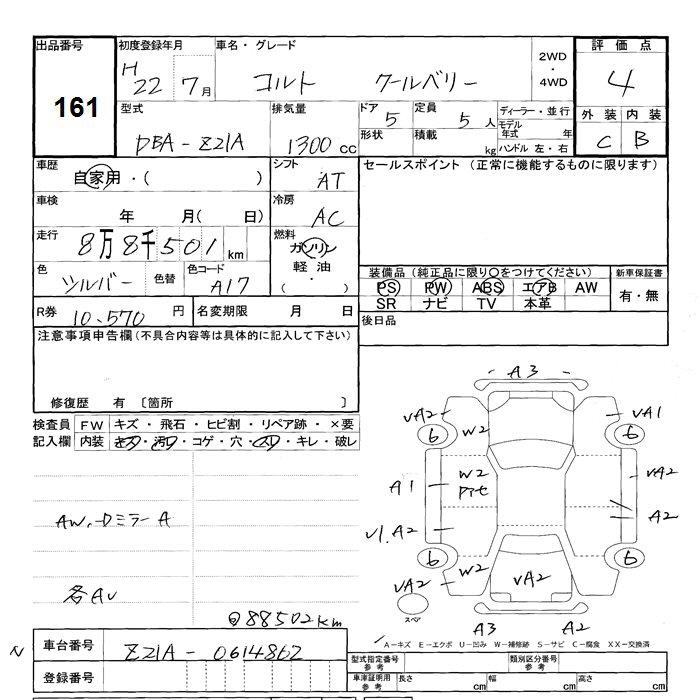 出品番号 161
初度登録年月 H 22 7月
車名・グレード コルト クールベリー
2WD・4WD
評価点 4
型式 DBA-Z21A
排気量 1300cc
ドア 5
形状
定員 5人
積載 kg
ディーラー・並行
モデル年式 年
ハンドル 左・右
外装 内装
C B
車歴 自家用・( )
シフト AT
セールスポイント (正常に機能するものに限ります)
車検 年 月( 日)
冷房 AC
走行 8万8千501km
燃料 ガソリン
軽油・
( )
色 シルバー 色替
色コード A17
装備品 (純正品に限り○をつけてください)
PS PW ABS エアB AW
SR ナビ TV 本革
新車保証書
有・無
R券 10,570円
名変期限 月 日
後日品
注意事項申告欄 (不具合内容等は具体的に記入して下さい)
修復歴 有 〔箇所 〕
検査員 FW キズ・飛石・ヒビ割・リペア跡・×要
記入欄 内装 キズ・汚れ・コゲ・穴・スレ・キレ・破レ
AW、Dミラー A
各AU
88502km
A3
VA2 VA1
6 W2 6
W2 VA2
A1
A2
V1.A2
6 6
VA2 W2 VA2 VA2
スペア
A3 A2
A-キズ E-エクボ U-凹み W-補修跡 S-サビ C-腐食 XX-交換済
N
車台番号 Z21A-0614862
登録番号
型式指定番号 参考
類別区分番号 参考
車庫証明用 参考 長さ cm 幅 cm 高さ cm